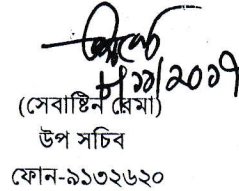 ৮/১১/২০১৭
(সেবাষ্টিন রেমা)
উপ সচিব
ফোন-৯১৩২৬২০